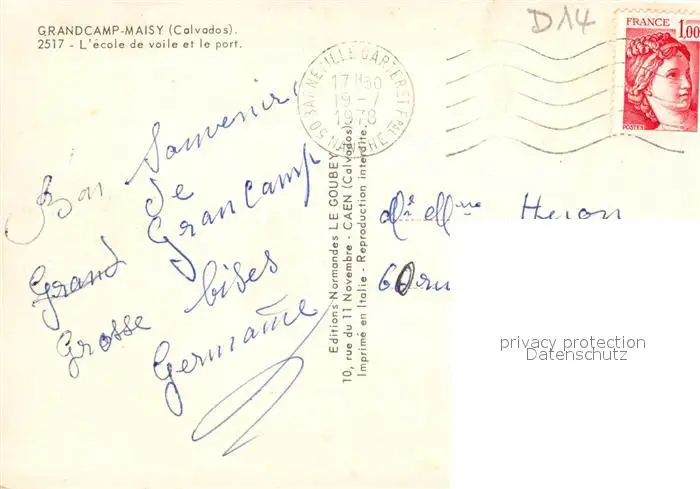 GRANDCAMP-MAISY (Calvados).
2517 - L'école de voile et le port.
D14
FRANCE
1,00
POSTES
BARNEVILLE CARTERET PAL
17 H 30
19 - 7
1978
50 MANCHE
Bon Souvenir
de
Grancamp
Grand
Grosse bises
Germaine
Editions Normandes LE GOUBEY
10, rue du 11 Novembre - CAEN (Calvados)
Imprimé en Italie - Reproduction interdite.
Mr et Mme Heron
60 ru
privacy protection
Datenschutz